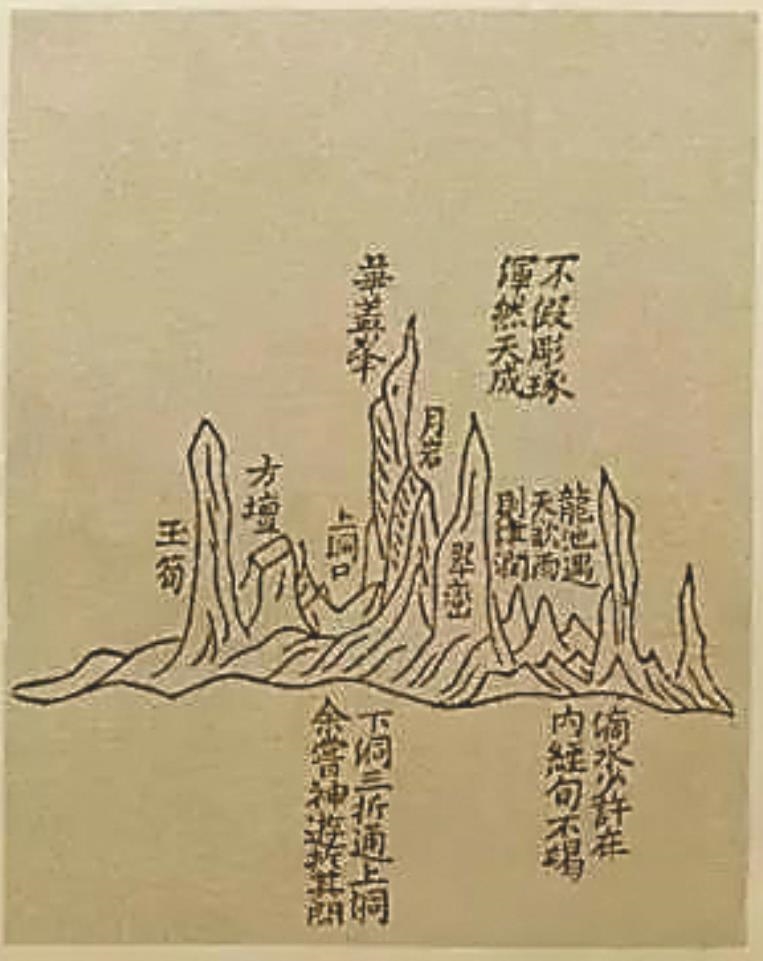 不假彫琢
渾然天成
華蓋峯
月岩
龍池遇
天欲雨
則津潤
翠巒
上洞口
方壇
玉筍
滴水少許在
內經旬不竭
下洞三折通上洞
余嘗神遊於其間